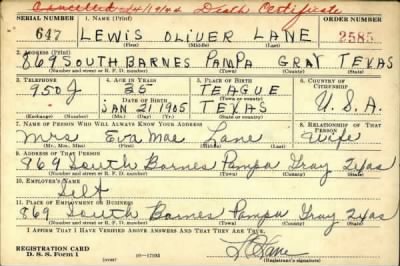 Cancelled 24/1944 Death Certificate
SERIAL NUMBER 1. NAME (Print) ORDER NUMBER
647 LEWIS OLIVER LANE 2585
(First) (Middle) (Last)
2. ADDRESS (Print)
869 SOUTH BARNES PAMPA GRAY TEXAS
(Number and street or R. F. D. number) (Town) (County) (State)
3. TELEPHONE 4. AGE IN YEARS 5. PLACE OF BIRTH 6. COUNTRY OF CITIZENSHIP
950J 35 TEAGUE
DATE OF BIRTH (Town or county)
JAN 21 1905 TEXAS U.S.A.
(Exchange) (Number) (Mo.) (Day) (Yr.) (State or country)
7. NAME OF PERSON WHO WILL ALWAYS KNOW YOUR ADDRESS 8. RELATIONSHIP OF THAT PERSON
Mrs Eva Mae Lane Wife
(Mr., Mrs., Miss) (First) (Middle) (Last)
9. ADDRESS OF THAT PERSON
869 South Barnes Pampa Gray Texas
(Number and street or R. F. D. number) (Town) (County) (State)
10. EMPLOYER'S NAME
Self
11. PLACE OF EMPLOYMENT OR BUSINESS
869 South Barnes Pampa Gray Texas
(Number and street or R. F. D. number) (Town) (County) (State)
I AFFIRM THAT I HAVE VERIFIED ABOVE ANSWERS AND THAT THEY ARE TRUE.
REGISTRATION CARD
D. S. S. Form 1 (over) 16—17105 Lane